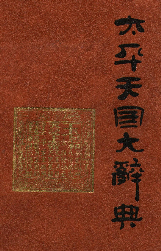 太平天国大辞典